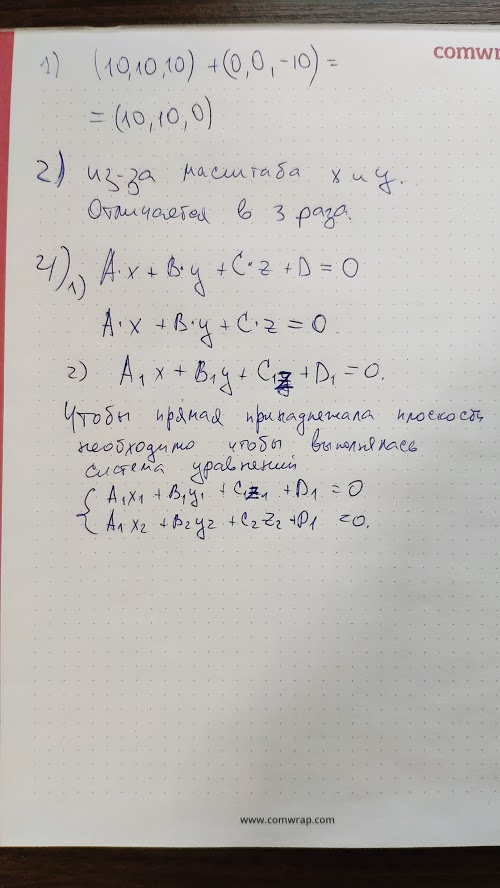 comwr
1) (10,10,10) + (0,0,-10) =
= (10,10,0)
2) из-за масштаба x и y.
Отличается в 3 раза.
4) 1) A·x + B·y + C·z + D = 0
A·x + B·y + C·z = 0.
2) A₁x + B₁y + C₁z + D₁ = 0.
Чтобы прямая принадлежала плоскость
необходимо чтобы выполнялась
система уравнений
{ A₁x₁ + B₁y₁ + C₁z₁ + D₁ = 0
A₁x₂ + B₂y₂ + C₂z₂ + D₁ = 0.
www.comwrap.com